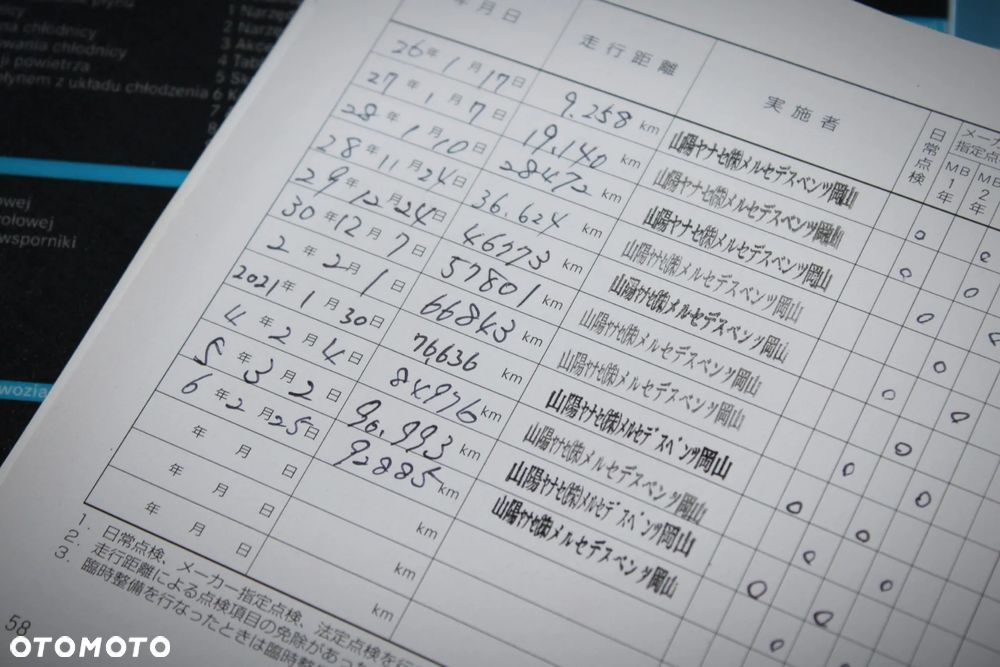 płynu
na chłodnicy
owania chłodnicy
ji powietrza
płynem z układu chłodzenia
1 Narzęd
2 Narzę
3 Akce
4 Tab
5 Sk
6 K
7
8
owej
ołowej
wsporniki
wozia
年月日 走行距離 実施者 日常点検 メーカ指定点 MB1年 MB2年
26年1月17日 9.258 km 山陽ヤナセ㈱メルセデスベンツ岡山
27年1月7日 19.140 km 山陽ヤナセ㈱メルセデスベンツ岡山
28年1月10日 28472 km 山陽ヤナセ㈱メルセデスベンツ岡山
28年11月24日 36.624 km 山陽ヤナセ㈱メルセデスベンツ岡山
29年12月24日 46773 km 山陽ヤナセ㈱メルセデスベンツ岡山
30年12月7日 57801 km 山陽ヤナセ㈱メルセデスベンツ岡山
2年2月1日 66843 km 山陽ヤナセ㈱メルセデスベンツ岡山
2021年1月30日 76636 km 山陽ヤナセ㈱メルセデスベンツ岡山
4年2月4日 84976 km 山陽ヤナセ㈱メルセデスベンツ岡山
5年3月2日 90.993 km 山陽ヤナセ㈱メルセデスベンツ岡山
6年2月25日 92885 km 山陽ヤナセ㈱メルセデスベンツ岡山
年 月 日 km
年 月 日 km
年 月 日 km
1. 日常点検、メーカー指定点検、法定点検を行
2. 走行距離による点検項目の免除があった
3. 臨時整備を行なったときは臨時整
58
OTOMOTO